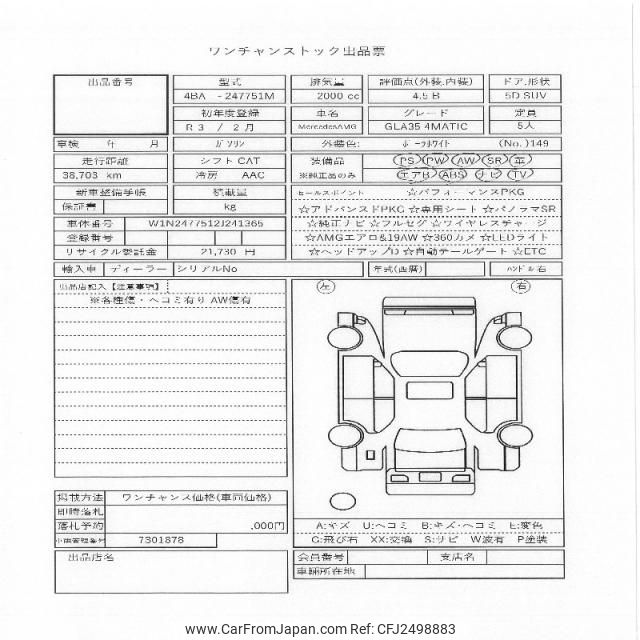 ワンチャンストック出品票
出品番号 型式 排気量 評価点(外装.内装) ドア.形状
4BA -247751M 2000 cc 4.5 B 5D SUV
初年度登録 車名 グレード 定員
R3 / 2月 MercedesAMG GLA35 4MATIC 5人
車検 年 月 ガソリン 外装色: ポーラホワイト (No.)149
走行距離 シフト CAT 装備品 PS PW AW SR 革
38,703 km 冷房 AAC ※純正品のみ エアB ABS ナビ TV
新車整備手帳 積載量 セールスポイント ☆パフォーマンスPKG
保証書 kg ☆アドバンスドPKG ☆専用シート ☆パノラマSR
車体番号 W1N2477512J241365 ☆純正ナビ ☆フルセグ ☆ワイヤレスチャージ
登録番号 ☆AMGエアロ&19AW ☆360カメ ☆LEDライト
リサイクル委託金 21,730 円 ☆ヘッドアップD ☆自動テールゲート ☆ETC
輸入車 ディーラー シリアルNo 年式(西暦) ハンドル 右
出品店記入【注意事項】 左 右
※各種傷・ヘコミ有り AW傷有
掲載方法 ワンチャンス価格(車両価格)
即時落札
落札予約 ,000円
7301878
A:キズ U:ヘコミ B:キズ・ヘコミ E:変色
G:飛び石 XX:交換 S:サビ W波有 P塗装
出品店名 会員番号 支店名
車輌所在地
www.CarFromJapan.com Ref: CFJ2498883